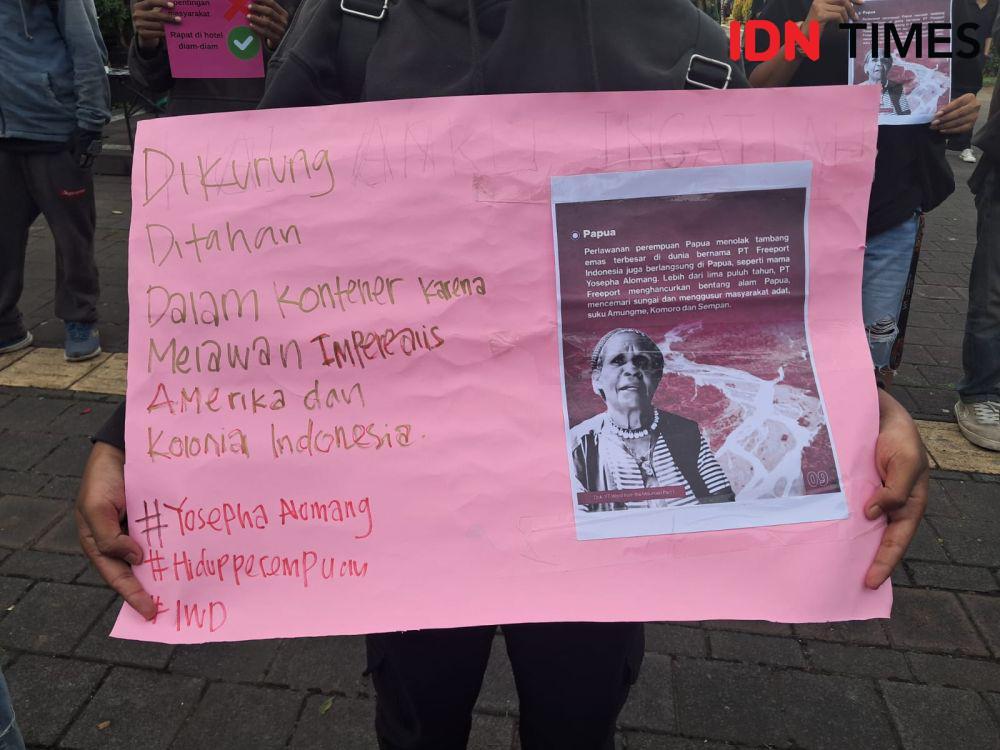 pentingan
masyarakat
Rapat di hotel
diam-diam
IDN TIMES
Papua
DiKurung
Ditahan
Dalam Kontener Karena
Melawan Imperealis
AMerika dan
Kolonia Indonesia.
#Yosepha Alomang
#Hidupperempuan
#IWD
Papua
Perlawanan perempuan Papua menolak tambang
emas terbesar di dunia bernama PT Freeport
Indonesia juga berlangsung di Papua, seperti mama
Yosepha Alomang. Lebih dari lima puluh tahun, PT
Freeport menghancurkan bentang alam Papua,
mencemari sungai dan menggusur masyarakat adat,
suku Amungme, Komoro dan Sempan.
09